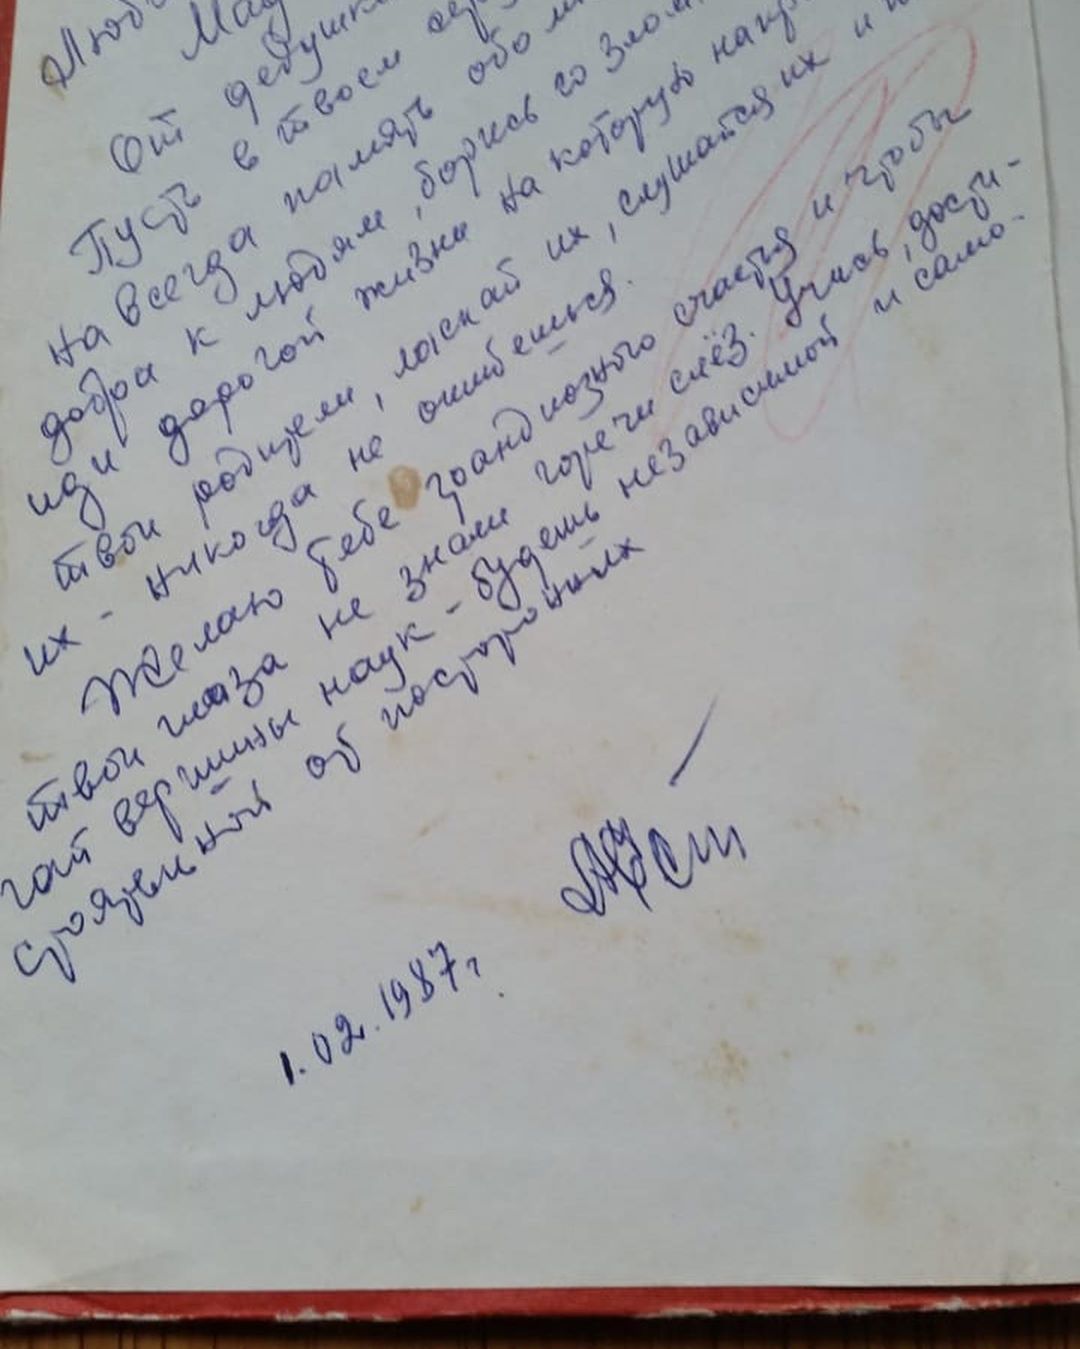 Люб
Мад
От дедушк
Пусть в твоем сер
на всегда память обо мн
добра к людям, борись со злом,
иди дорогой жизни на которую напр
твои родители, ласкай их, слушайся их и
их - никогда не ошибешься.
Желаю тебе грандиозного счастья и чтобы
твои глаза не знали горечи слёз. Учись, дости-
гай вершины наук - будешь независимой и само-
стоятельной от посторонних
1.02.1987г.